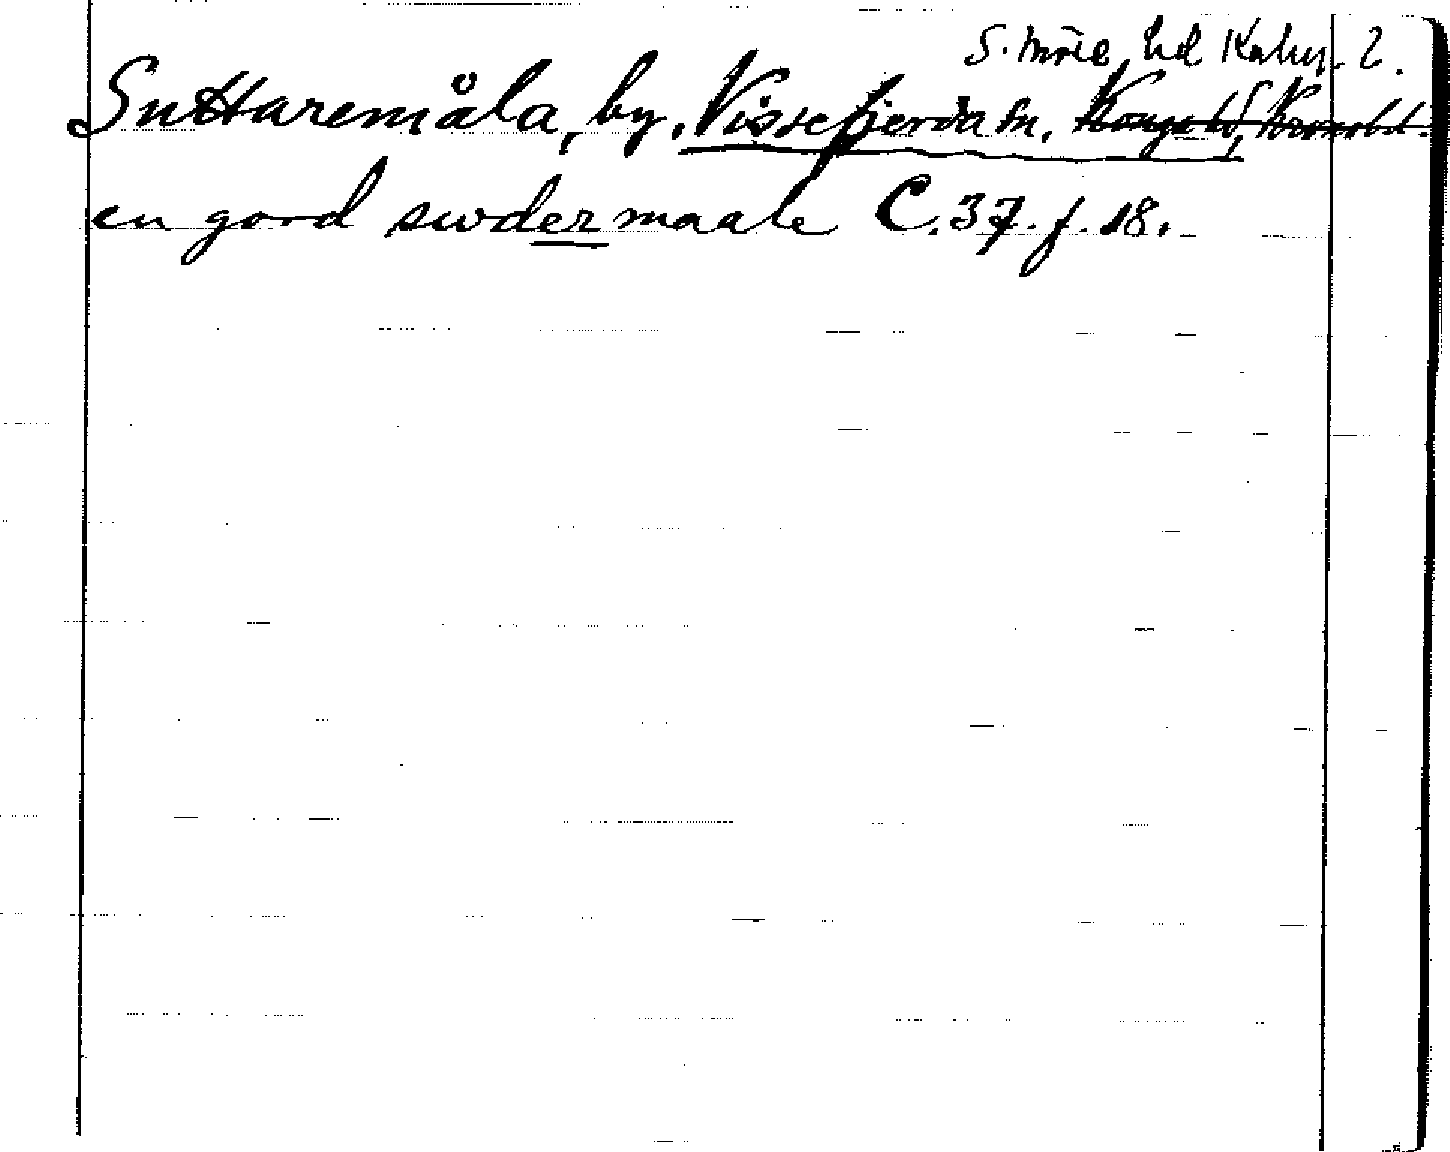 S. Möre hd Kalm. l.
Suttaremåla, by, Vissefjerda sn, Konga hd, Kronobl.
en gord swdermaale C. 37. f. 18.